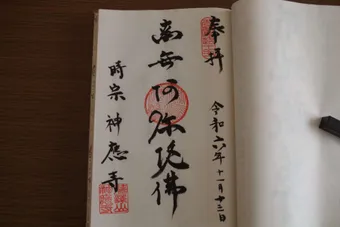 奉拝
令和六年十一月廿三日
南無阿弥陀佛
時宗神應寺